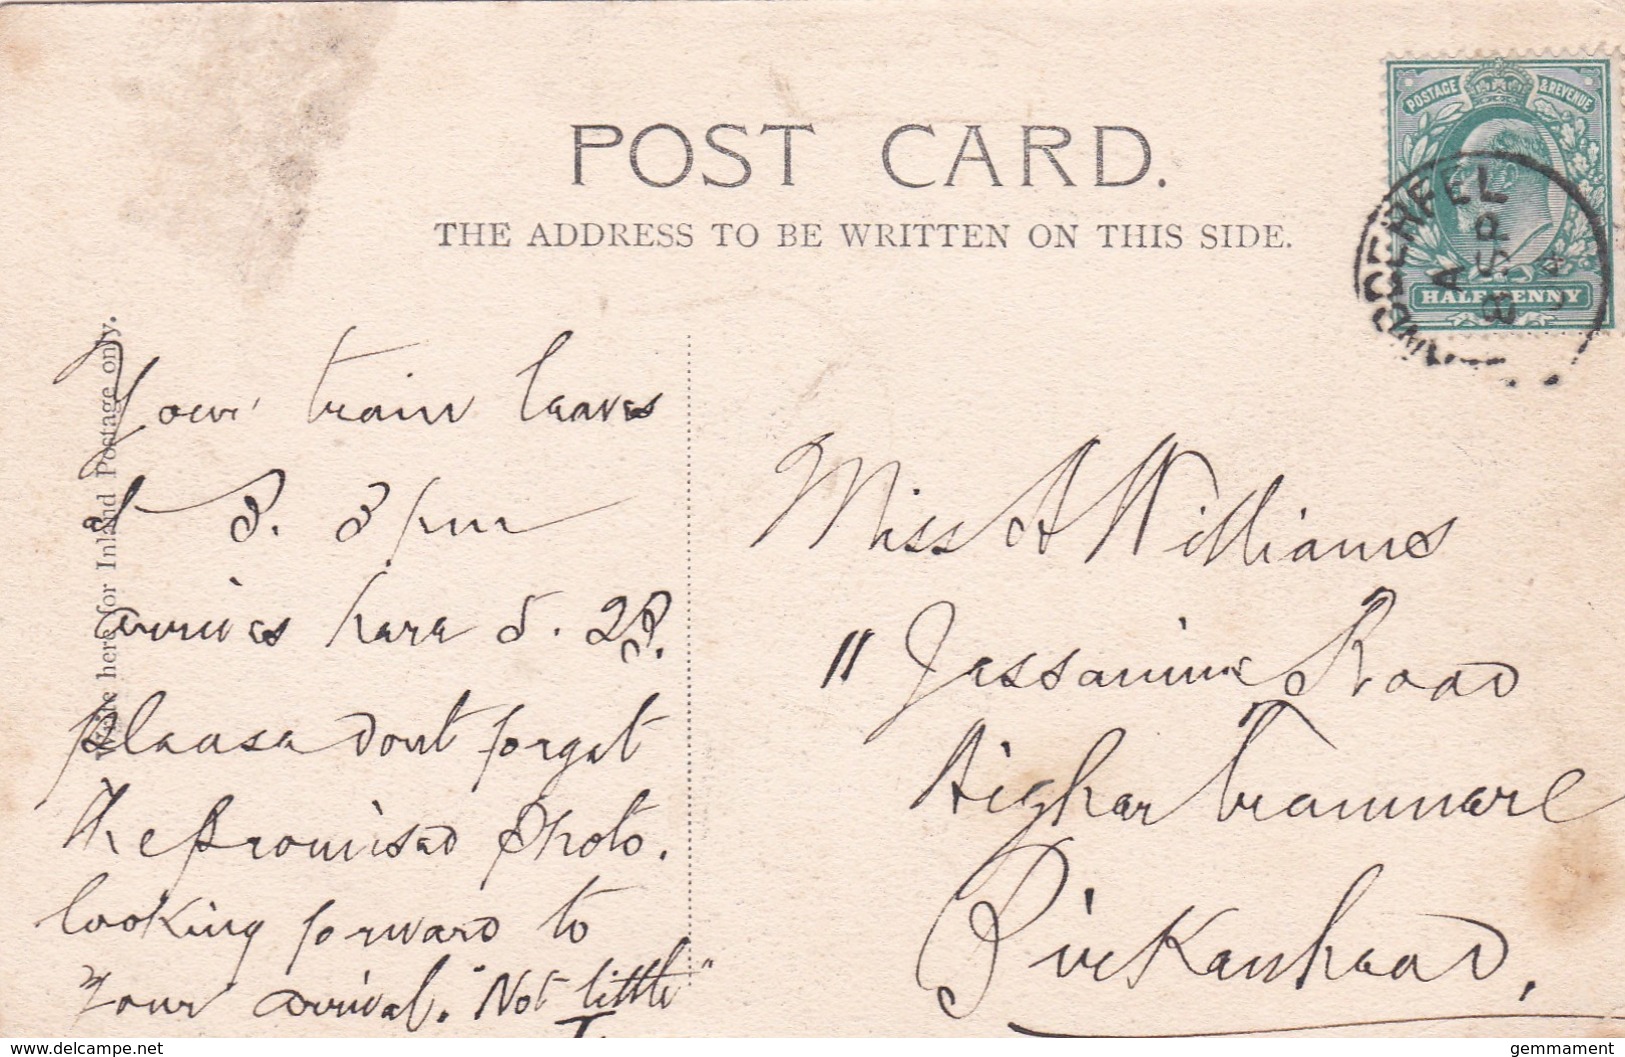 POST CARD.
THE ADDRESS TO BE WRITTEN ON THIS SIDE.
POSTAGE & REVENUE
HALFPENNY
A
SP 8
04
Write here for Inland Postage only.
Your train leaves
at 3. 3 pm
arrives here 5. 23.
please dont forget
the promised Photo.
looking forward to
your arrival. "Not little"
Miss A Williams
11 Jessamine Road
Higher Tranmere
Birkenhead,
delcampe.net
gemmament